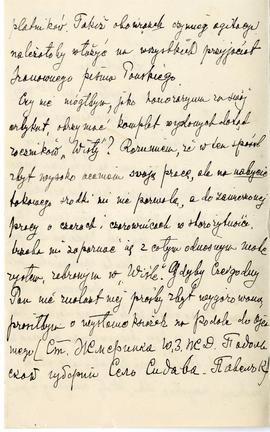 płatników. Takiż obowiązek czynnej agitacji
należałoby włożyć na wszystkich przyjaciół
Szanownego pisma Pańskiego.
Czy nie mógłbym, jako honorarjum za swój
artykuł, otrzymać komplet wydanych dotąd
roczników „Wisły"? Rozumiem, że w ten sposób
zbyt wysoko oceniam swoją pracę, ale na nabycie
takowego środki mi nie pozwolą, a do zamierzonej
pracy o czarach i czarownicach w starożytności
trzeba mi zapoznać się z całym odnośnym mate-
ryałem, zebranym w „Wiśle". Gdyby Czcigodny
Pan nie znalazł mej prośby zbyt wygórowaną,
prosiłbym o wysłanie książek na Podole do Ojca
mego (Ст. Жмеринка Ю.З.Ж.Д. Подоль-
ской губерніи Село Сидава